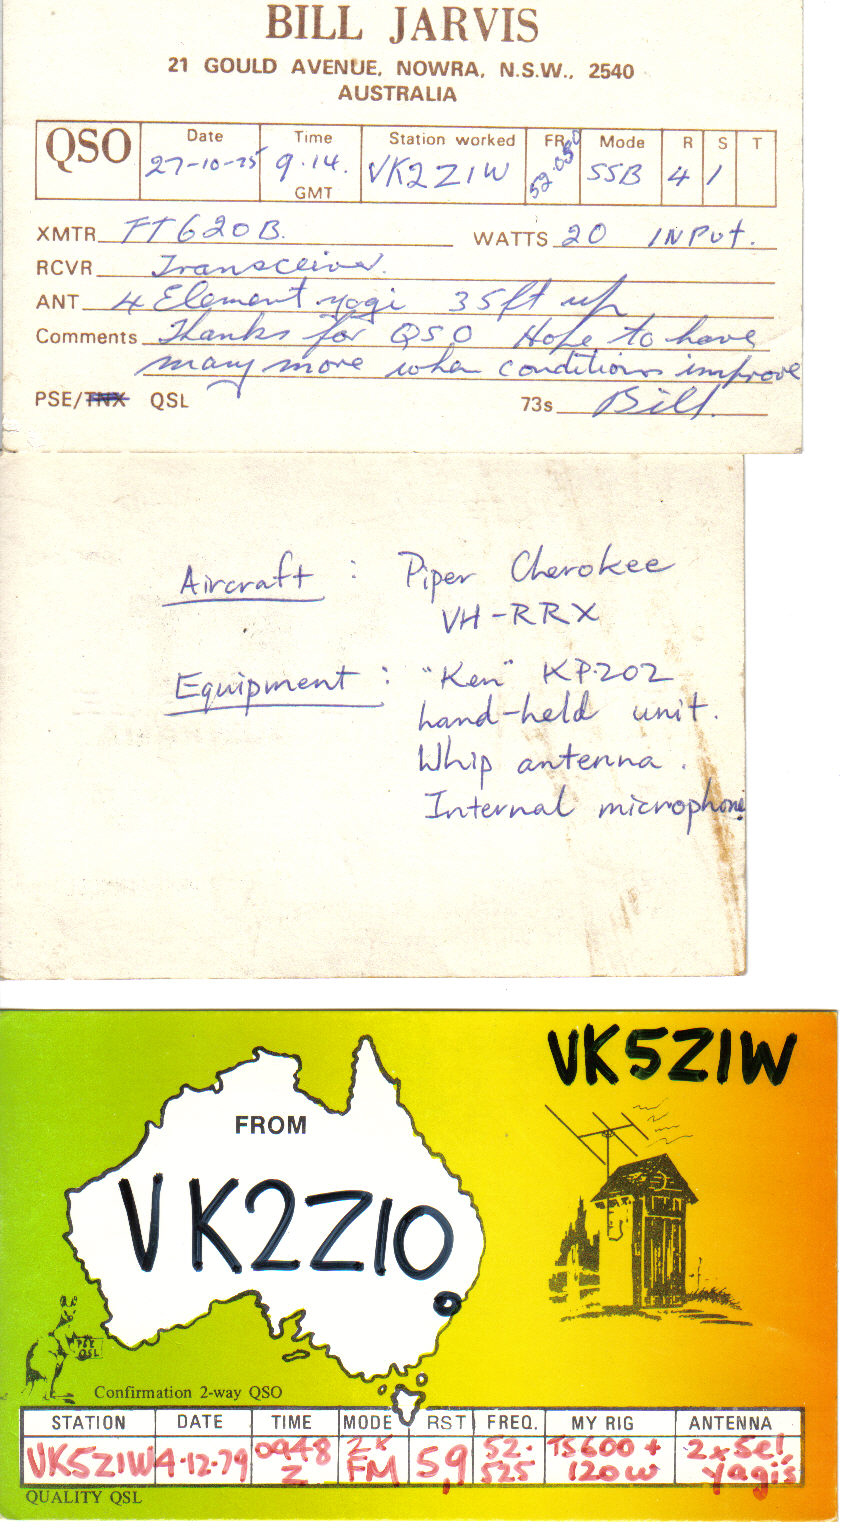 BILL JARVIS
21 GOULD AVENUE, NOWRA, N.S.W., 2540
AUSTRALIA
QSO Date Time Station worked FR Mode R S T
27-10-75 9.14. VK2ZIW 52.050 SSB 4 1
GMT
XMTR FT620B. WATTS 20 INPUT.
RCVR Transceiver.
ANT 4 Element yagi 35ft up
Comments Thanks for QSO Hope to have
many more when conditions improve
PSE/TNX QSL 73s Bill.
Aircraft : Piper Cherokee
VH-RRX
Equipment : "Ken" KP-202
hand-held unit.
Whip antenna.
Internal microphone
VK5ZIW
FROM
VK2ZIO
PSE
QSL
Confirmation 2-way QSO
STATION DATE TIME MODE RST FREQ. MY RIG ANTENNA
VK5ZIW 4-12-79 0948 2x 5,9 52. TS600 + 2x5el.
Z FM 525 120W yagis
QUALITY QSL